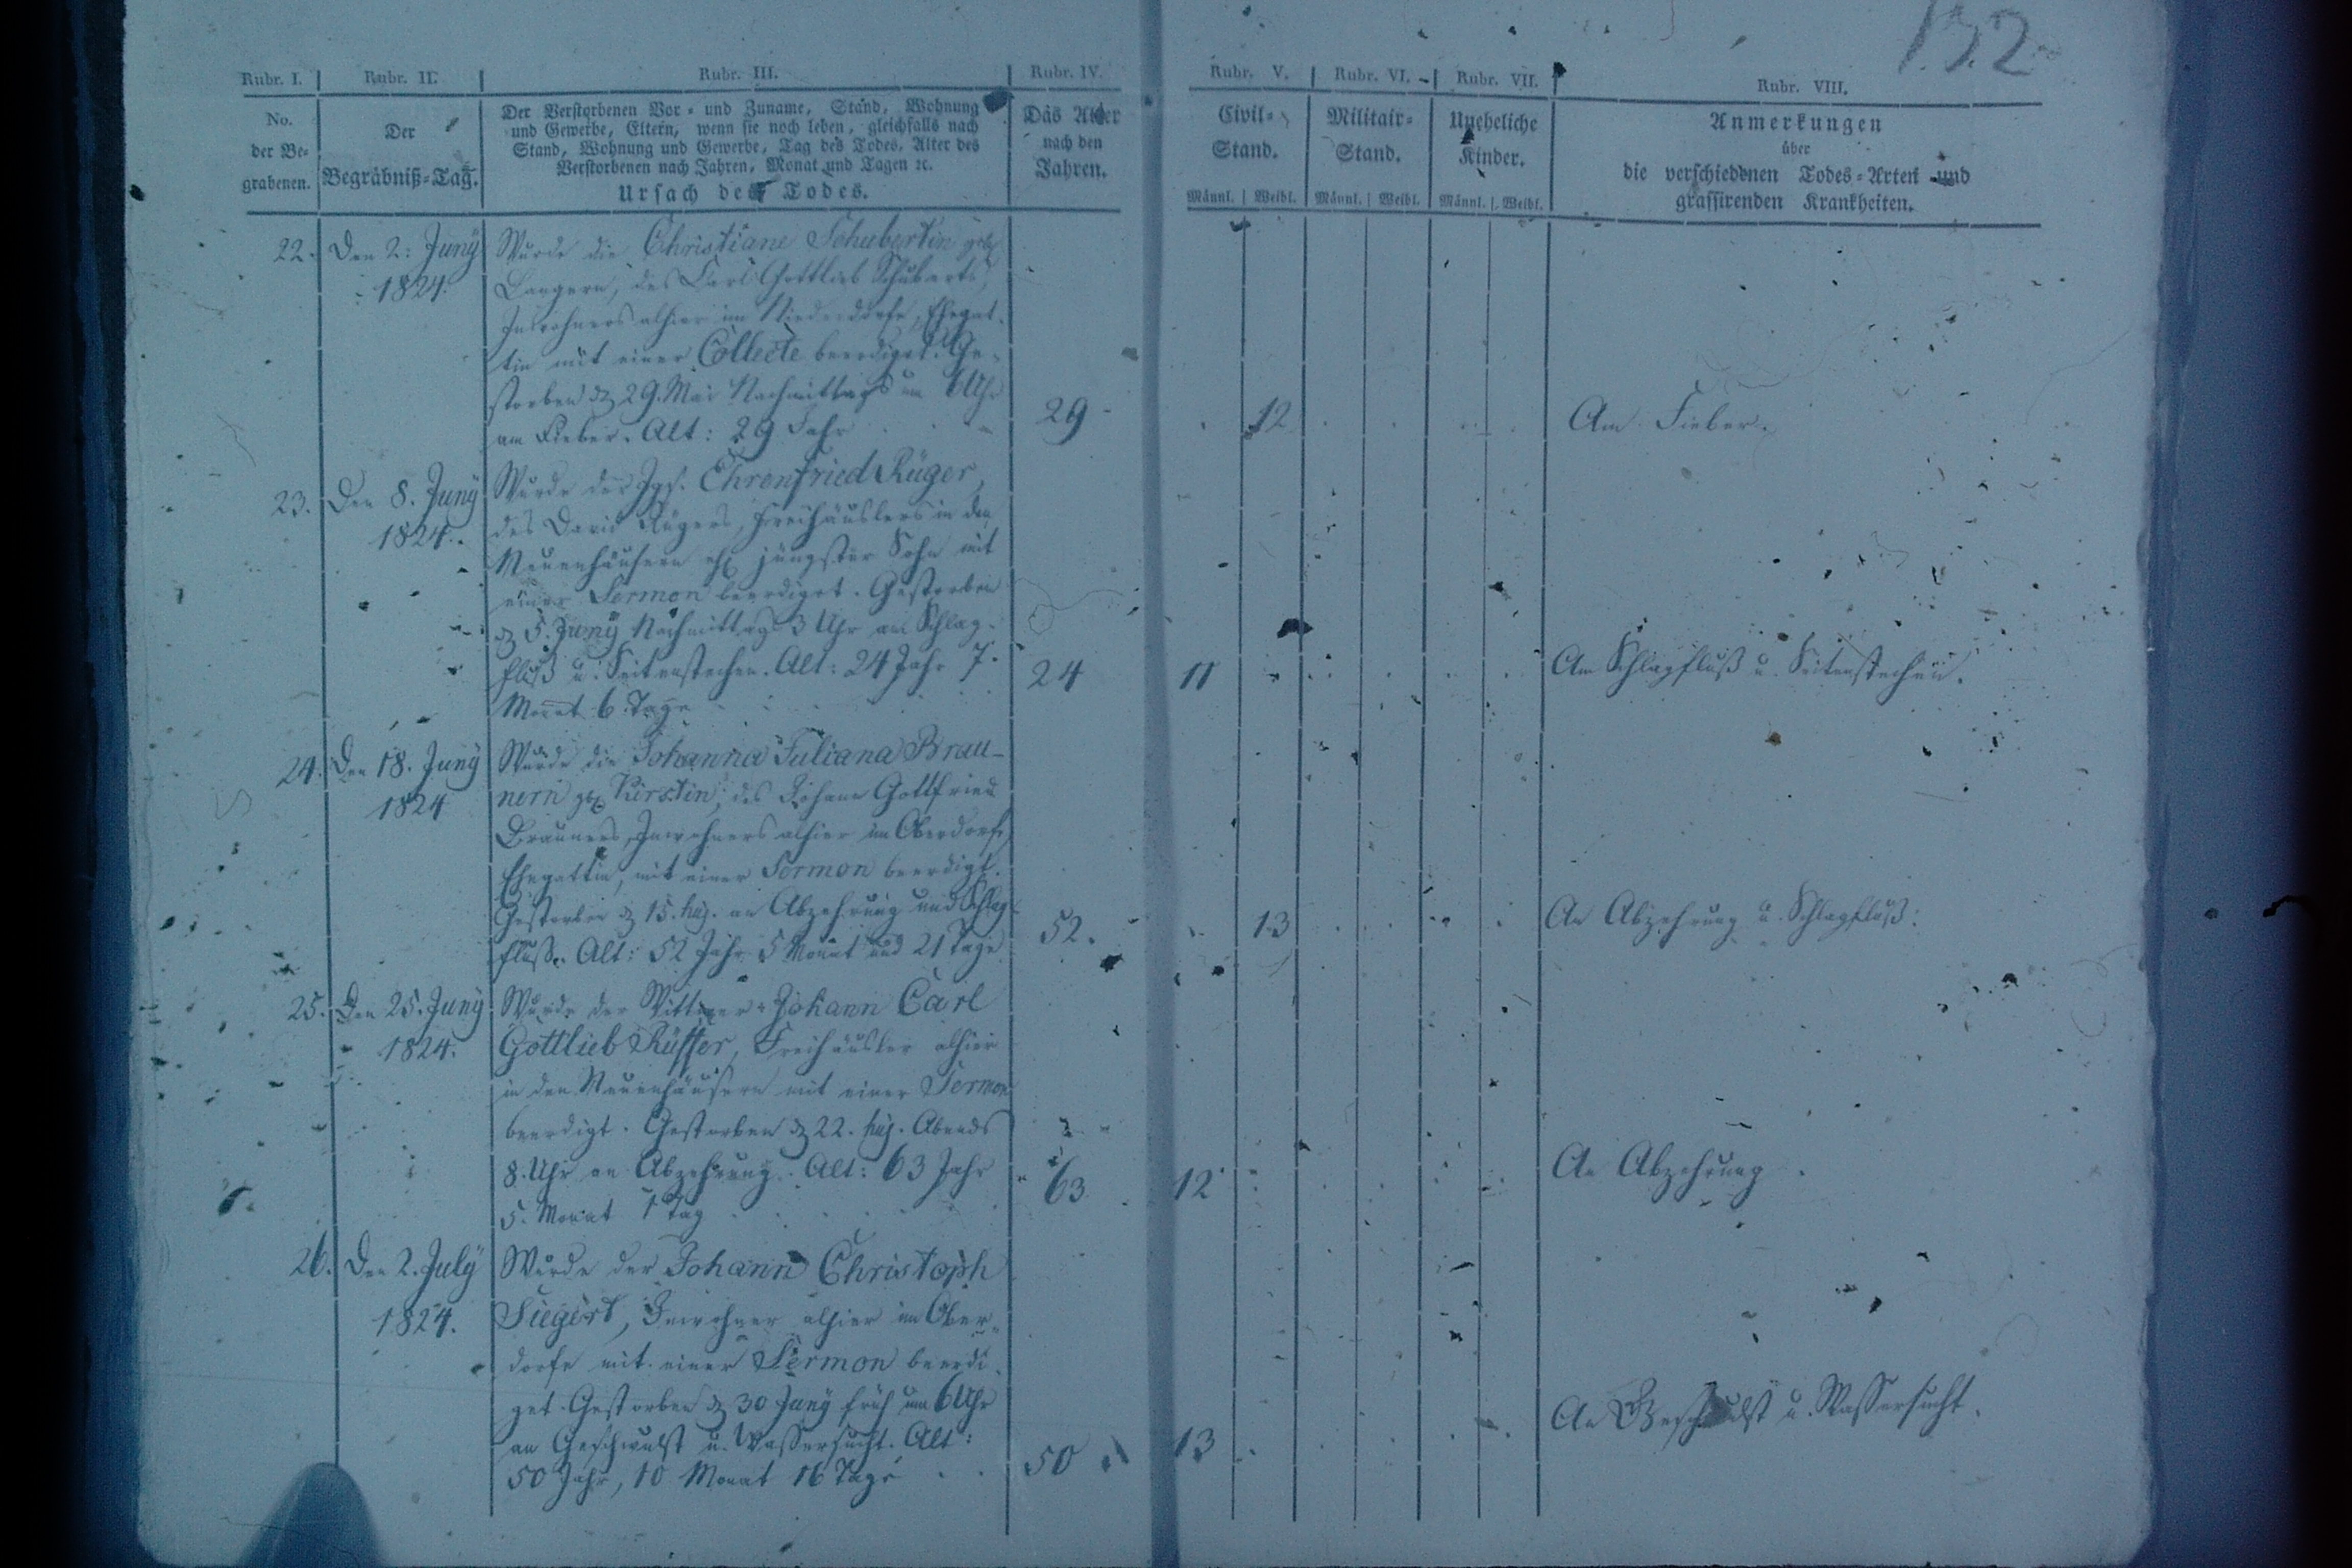 132
Rubr. I. Rubr. II. Rubr. III. Rubr. IV. Rubr. V. Rubr. VI. Rubr. VII. Rubr. VIII.
No.
der Be-
grabenen.
Der
Begräbniß-Tag.
Der Verstorbenen Vor- und Zuname, Stand, Wohnung
und Gewerbe, Eltern, wenn sie noch leben, gleichfalls nach
Stand, Wohnung und Gewerbe, Tag des Todes, Alter des
Verstorbenen nach Jahren, Monat und Tagen ꝛc.
Ursach des Todes.
Das Alter
nach den
Jahren.
Civil-
Stand.
Männl. Weibl.
Militair-
Stand.
Männl. Weibl.
Uneheliche
Kinder.
Männl. Weibl.
Anmerkungen
über
die verschiedenen Todes-Arten und
grassirenden Krankheiten.
22.
Den 2. Juny
1824.
Wurde die Christiane Schubertin geb.
Langern, des Carl Gottlieb Schuberts,
Inwohners alhier im Niederdorfe, Ehegat-
tin mit einer Collecte beerdiget. Ge-
storben d 29. Mai Nachmittags um 6 Uhr
am Fieber. Alt: 29 Jahr
29
12
Am Fieber.
23.
Den 8. Juny
1824.
Wurde der Jgs. Ehrenfried Rüger,
des David Rügers, Freihäuslers in den
Neuenhäusern ehl jüngster Sohn mit
einer Sermon beerdiget. Gestorben
d 5. Juny Nachmittag 3 Uhr am Schlag-
fluß u. Seitenstechen. Alt: 24 Jahr 7.
Monat 6. Tage
24
11
Am Schlagfluß u. Seitenstechen.
24.
Den 18. Juny
1824
Wurde die Johanna Juliana Brau-
nern geb Kirstin, des Johann Gottfried
Brauners, Inwohners alhier im Oberdorfe,
Ehegattin, mit einer Sermon beerdigt.
Gestorben d 15. huj. an Abzehrung und Schlag-
fluß. Alt: 52 Jahr 5 Monat und 21 Tage
52.
13
An Abzehrung u. Schlagfluß.
25.
Den 25. Juny
1824.
Wurde der Wittwer Johann Carl
Gottlieb Rüffer, Freihäusler alhier
in den Neuenhäusern mit einer Sermon
beerdigt. Gestorben d 22. huj. Abends
8. Uhr an Abzehrung. Alt: 63 Jahr
5. Monat 1 Tag
63
12
An Abzehrung.
26.
Den 2. July
1824.
Wurde der Johann Christoph
Siegert, Inwohner alhier im Ober-
dorfe mit einer Sermon beerdi-
get. Gestorben d 30 Juny früh um 6 Uhr
an Geschwulst u. Wassersucht. Alt:
50 Jahr, 10 Monat 16 Tage
50
13
An Geschwulst u. Wassersucht.